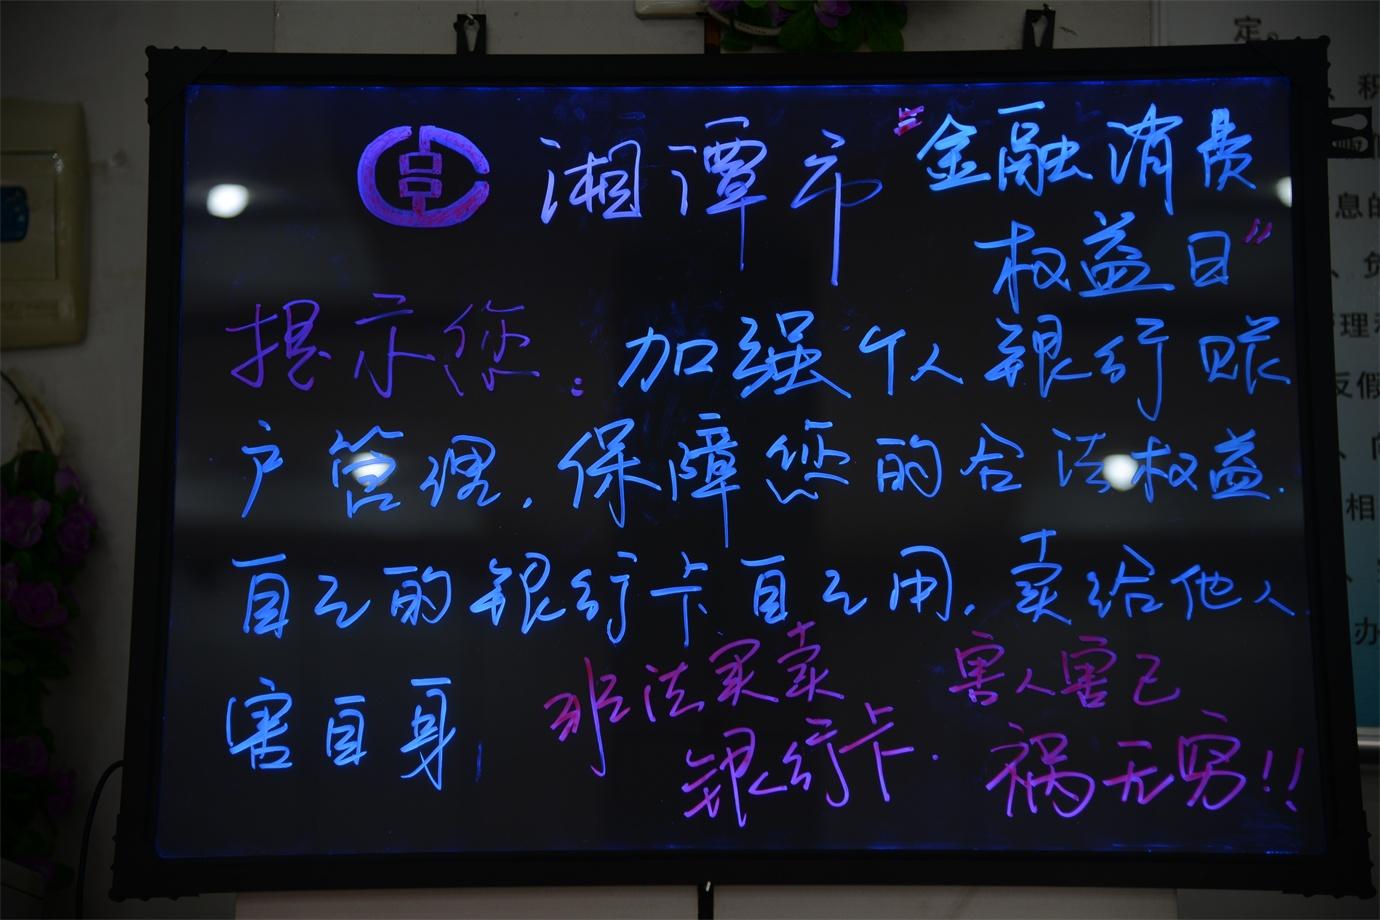 湘潭市“金融消费
权益日”
提示您：加强个人银行账
户管理，保障您的合法权益.
自己的银行卡自己用，卖给他人
害自身，
非法买卖
银行卡.
害人害己
祸无穷!!
定。
积
息的
负
管理和
反假
向
相
办